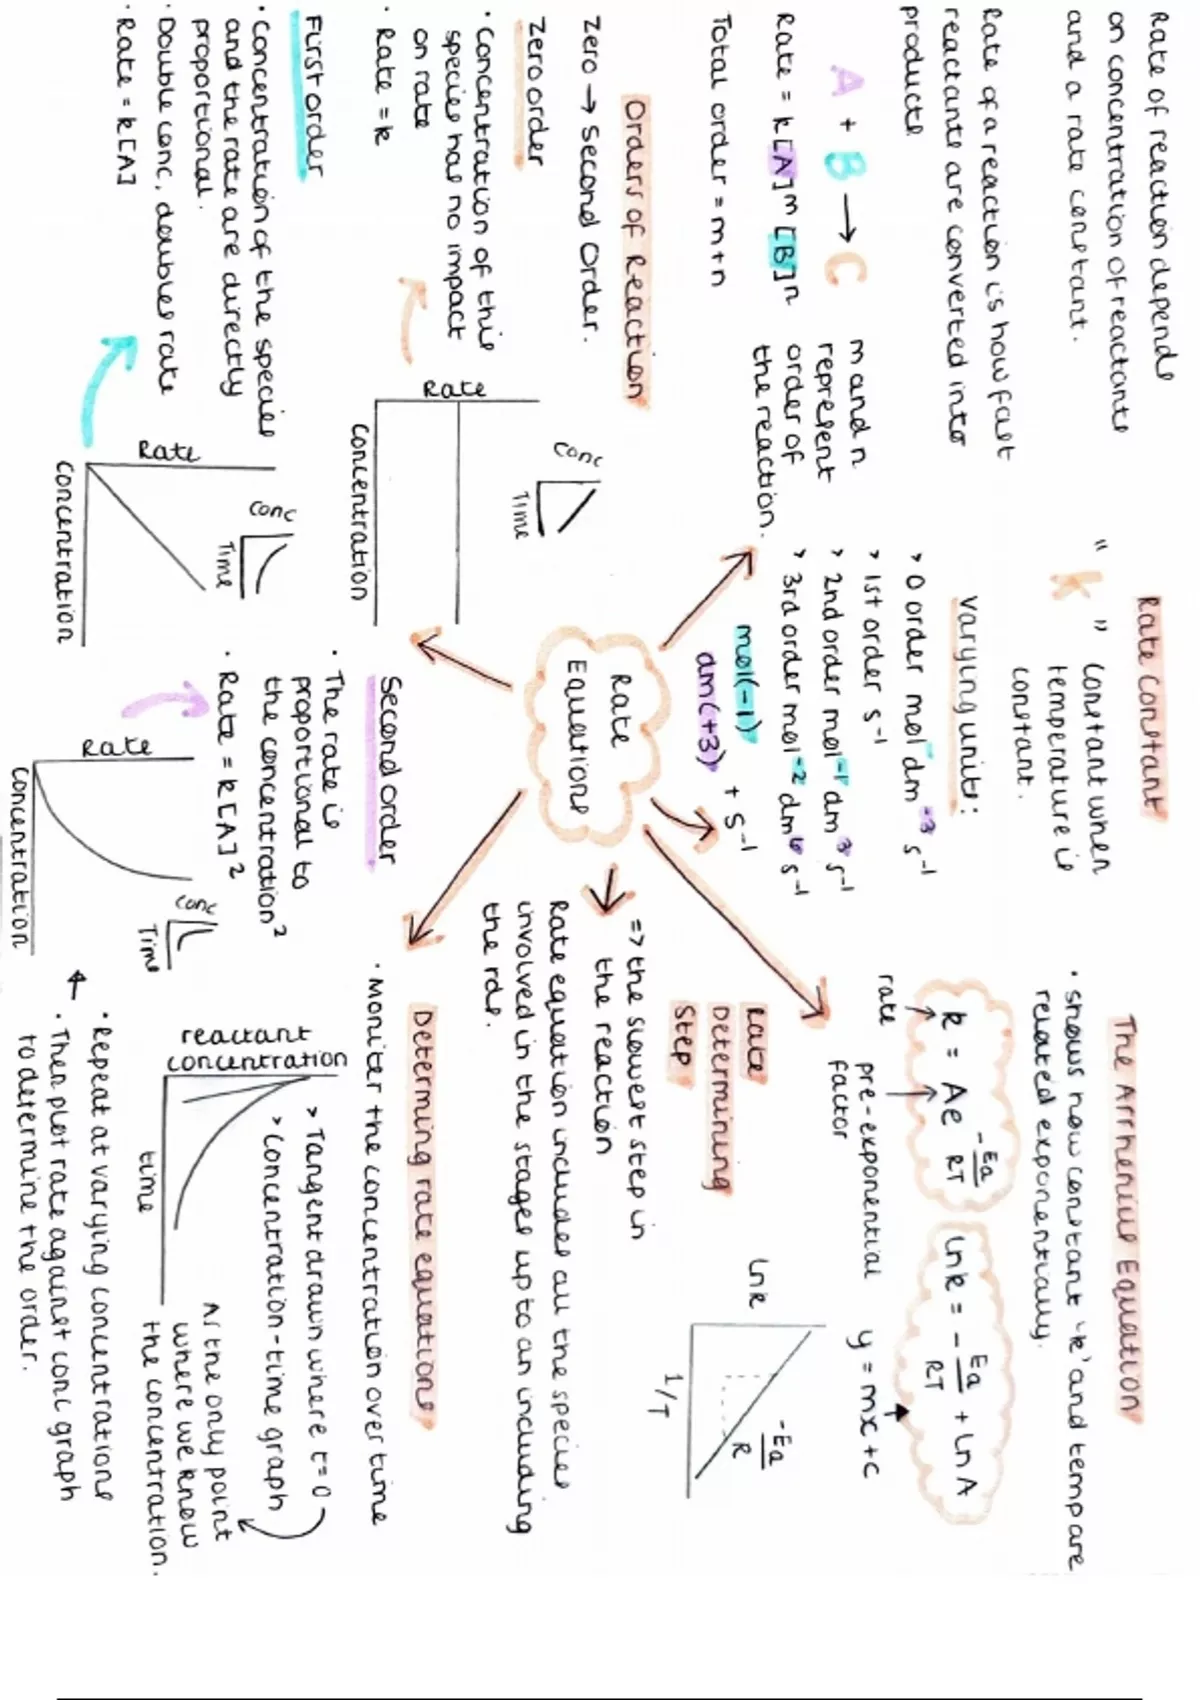 Rate of reaction depends
on concentration of reactants
and a rate constant.
Rate of a reaction is how fast
reactants are converted into
products
A + B → C
Rate = k[A]ᵐ [B]ⁿ
Total order = m+n
m and n
represent
order of
the reaction.
Orders of Reaction
Zero → Second Order.
Zero order
· Concentration of this
species has no impact
on rate
· Rate = k
Rate
Concentration
Conc
Time
First order
· Concentration of the species
and the rate are directly
proportional.
· Double conc, doubles rate
· Rate = k[A]
Rate
Concentration
Conc
Time
Rate Constant
" K " Constant when
temperature is
constant.
Varying units:
> 0 order mol⁻ dm⁻³ s⁻¹
> 1st order s⁻¹
> 2nd order mol⁻¹ dm³ s⁻¹
> 3rd order mol⁻² dm⁶ s⁻¹
mol(-1)
dm(+3) + s⁻¹
Rate
Equations
Second order
· The rate is
proportional to
the concentration²
· Rate = k[A]²
Rate
Concentration
Conc
Time
The Arrhenius Equation
· shows how constant 'k' and temp are
related exponentially.
k = Ae -Ea/RT
lnk = - Ea/RT + ln A
rate
pre-exponential
factor
y = mx + c
lnk
-Ea/R
1/T
Rate
Determining
Step
=> the slowest step in
the reaction
Rate equation includes all the species
involved in the stages up to an including
the rds.
Determining rate equations
· Moniter the concentration over time
reactant
concentration
time
> Tangent drawn where t=0
> Concentration-time graph
As the only point
where we know
the concentration.
· Repeat at varying concentrations
· Then plot rate against conc graph
to determine the order.